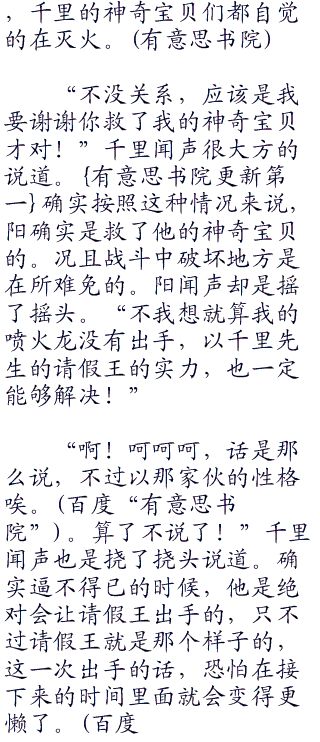 ，千里的神奇宝贝们都自觉
的在灭火。(有意思书院)
“不没关系，应该是我
要谢谢你救了我的神奇宝贝
才对！”千里闻声很大方的
说道。{有意思书院更新第
一}确实按照这种情况来说，
阳确实是救了他的神奇宝贝
的。况且战斗中破坏地方是
在所难免的。阳闻声却是摇
了摇头。“不我想就算我的
喷火龙没有出手，以千里先
生的请假王的实力，也一定
能够解决！”
“啊！呵呵呵，话是那
么说，不过以那家伙的性格
唉。(百度“有意思书
院”)。算了不说了！”千里
闻声也是挠了挠头说道。确
实逼不得已的时候，他是绝
对会让请假王出手的，只不
过请假王就是那个样子的，
这一次出手的话，恐怕在接
下来的时间里面就会变得更
懒了。(百度